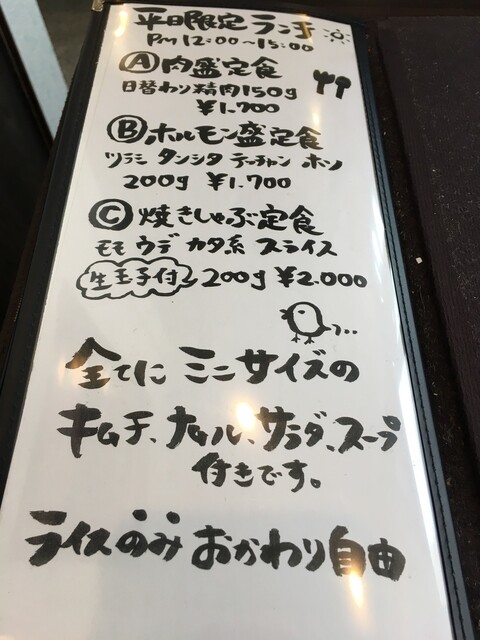 平日限定 ランチ
Pm 12:00〜15:00
Ⓐ肉盛定食
日替わり精肉150g
¥1.700
Ⓑホルモン盛定食
ツラミ タンシタ テーチャン ホソ
200g ¥1.700
Ⓒ焼きしゃぶ定食
モモ ウデ カタ系 スライス
生玉子付 200g ¥2.000
全てに ミニサイズの
キムチ、ナムル、サラダ、スープ
付きです。
ライスのみ おかわり自由